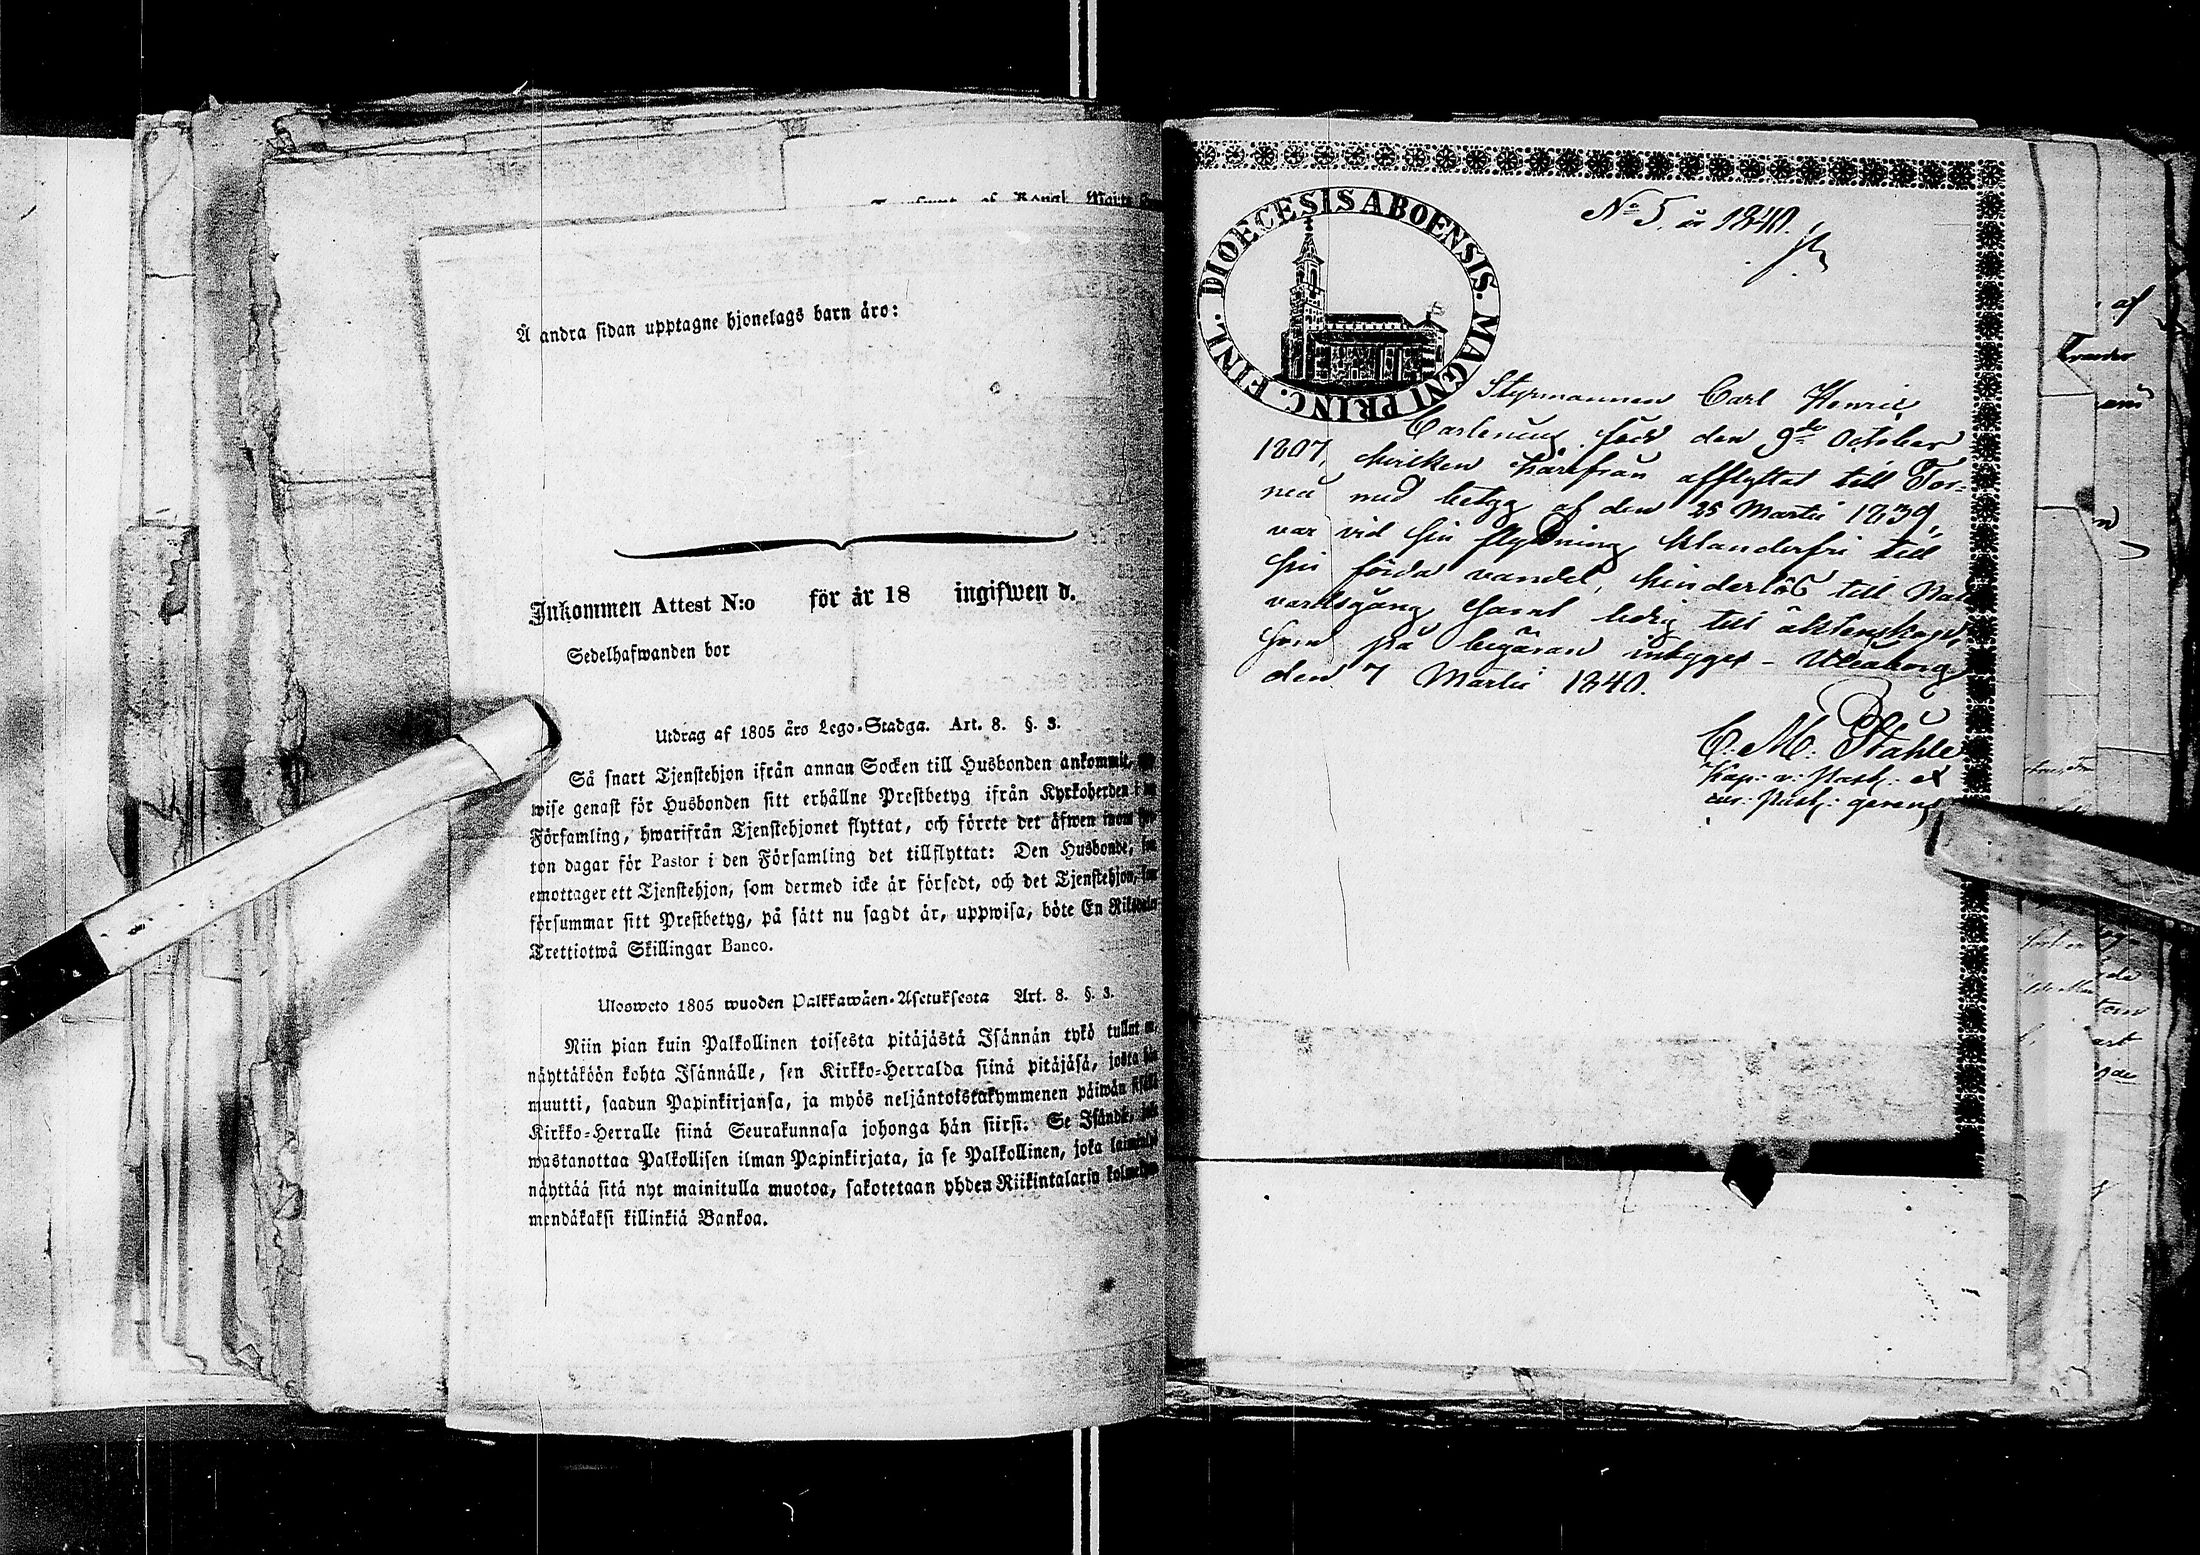 Å andra sidan upptagne hjonelags barn äro:
Inkommen Attest N:o för år 18 ingifwen d.
Sedelhafwanden bor
Utdrag af 1805 års Lego-Stadga. Art. 8. §. 3.
Så snart Tjenstehjon ifrån annan Socken till Husbonden ankommit,
wise genast för Husbonden sitt erhållne Prestbetyg ifrån Kyrkoherden i
Församling, hwarifrån Tjenstehjonet flyttat, och förete det äfwen inom
ton dagar för Pastor i den Församling det tillflyttat: Den Husbonde,
emottager ett Tjenstehjon, som dermed icke är försedt, och det Tjenstehjon,
försummar sitt Prestbetyg, på sätt nu sagdt är, uppwisa, böte En
Trettiotwå Skillingar Banco.
Ulosweto 1805 wuoden Palkkawäen-Asetuksesta Art. 8. §. 3.
Niin pian kuin Palkollinen toisesta pitäjästä Isännän tykö tullut
näyttäköön kohta Isännälle, sen Kirkko-Herralda siinä pitäjäsä, josta
muutti, saadun Papinkirjansa, ja myös neljäntoistakymmenen päiwän
Kirkko-Herralle siinä Seurakunnasa johonga hän siirsi: Se Isändä,
wastanottaa Palkollisen ilman Papinkirjata, ja se Palkollinen, joka
näyttää sitä nyt mainitulla muotoa, sakotetaan yhden Riikintalarin
mendäkaksi killinkiä Bankoa.
DIOECESIS ABOENSIS. MAGNI PRINC. FINL.
No 5. år 1840.
Styrmannen Carl Henric
Carlenius, född den 9de October
1807, hvilken härifrån afflyttat till Tor-
neå med betyg af den 25 Martii 1839,
var vid sin flyttning klanderfri till
sin förda vandel, hinderlös till Natt-
vardsgång samt ledig till äktenskap,
som på begäran intygas - Uleåborg
den 7 Martii 1840.
C. M. Ståhle
Kap: v: Past: et
cur: Past: gerens